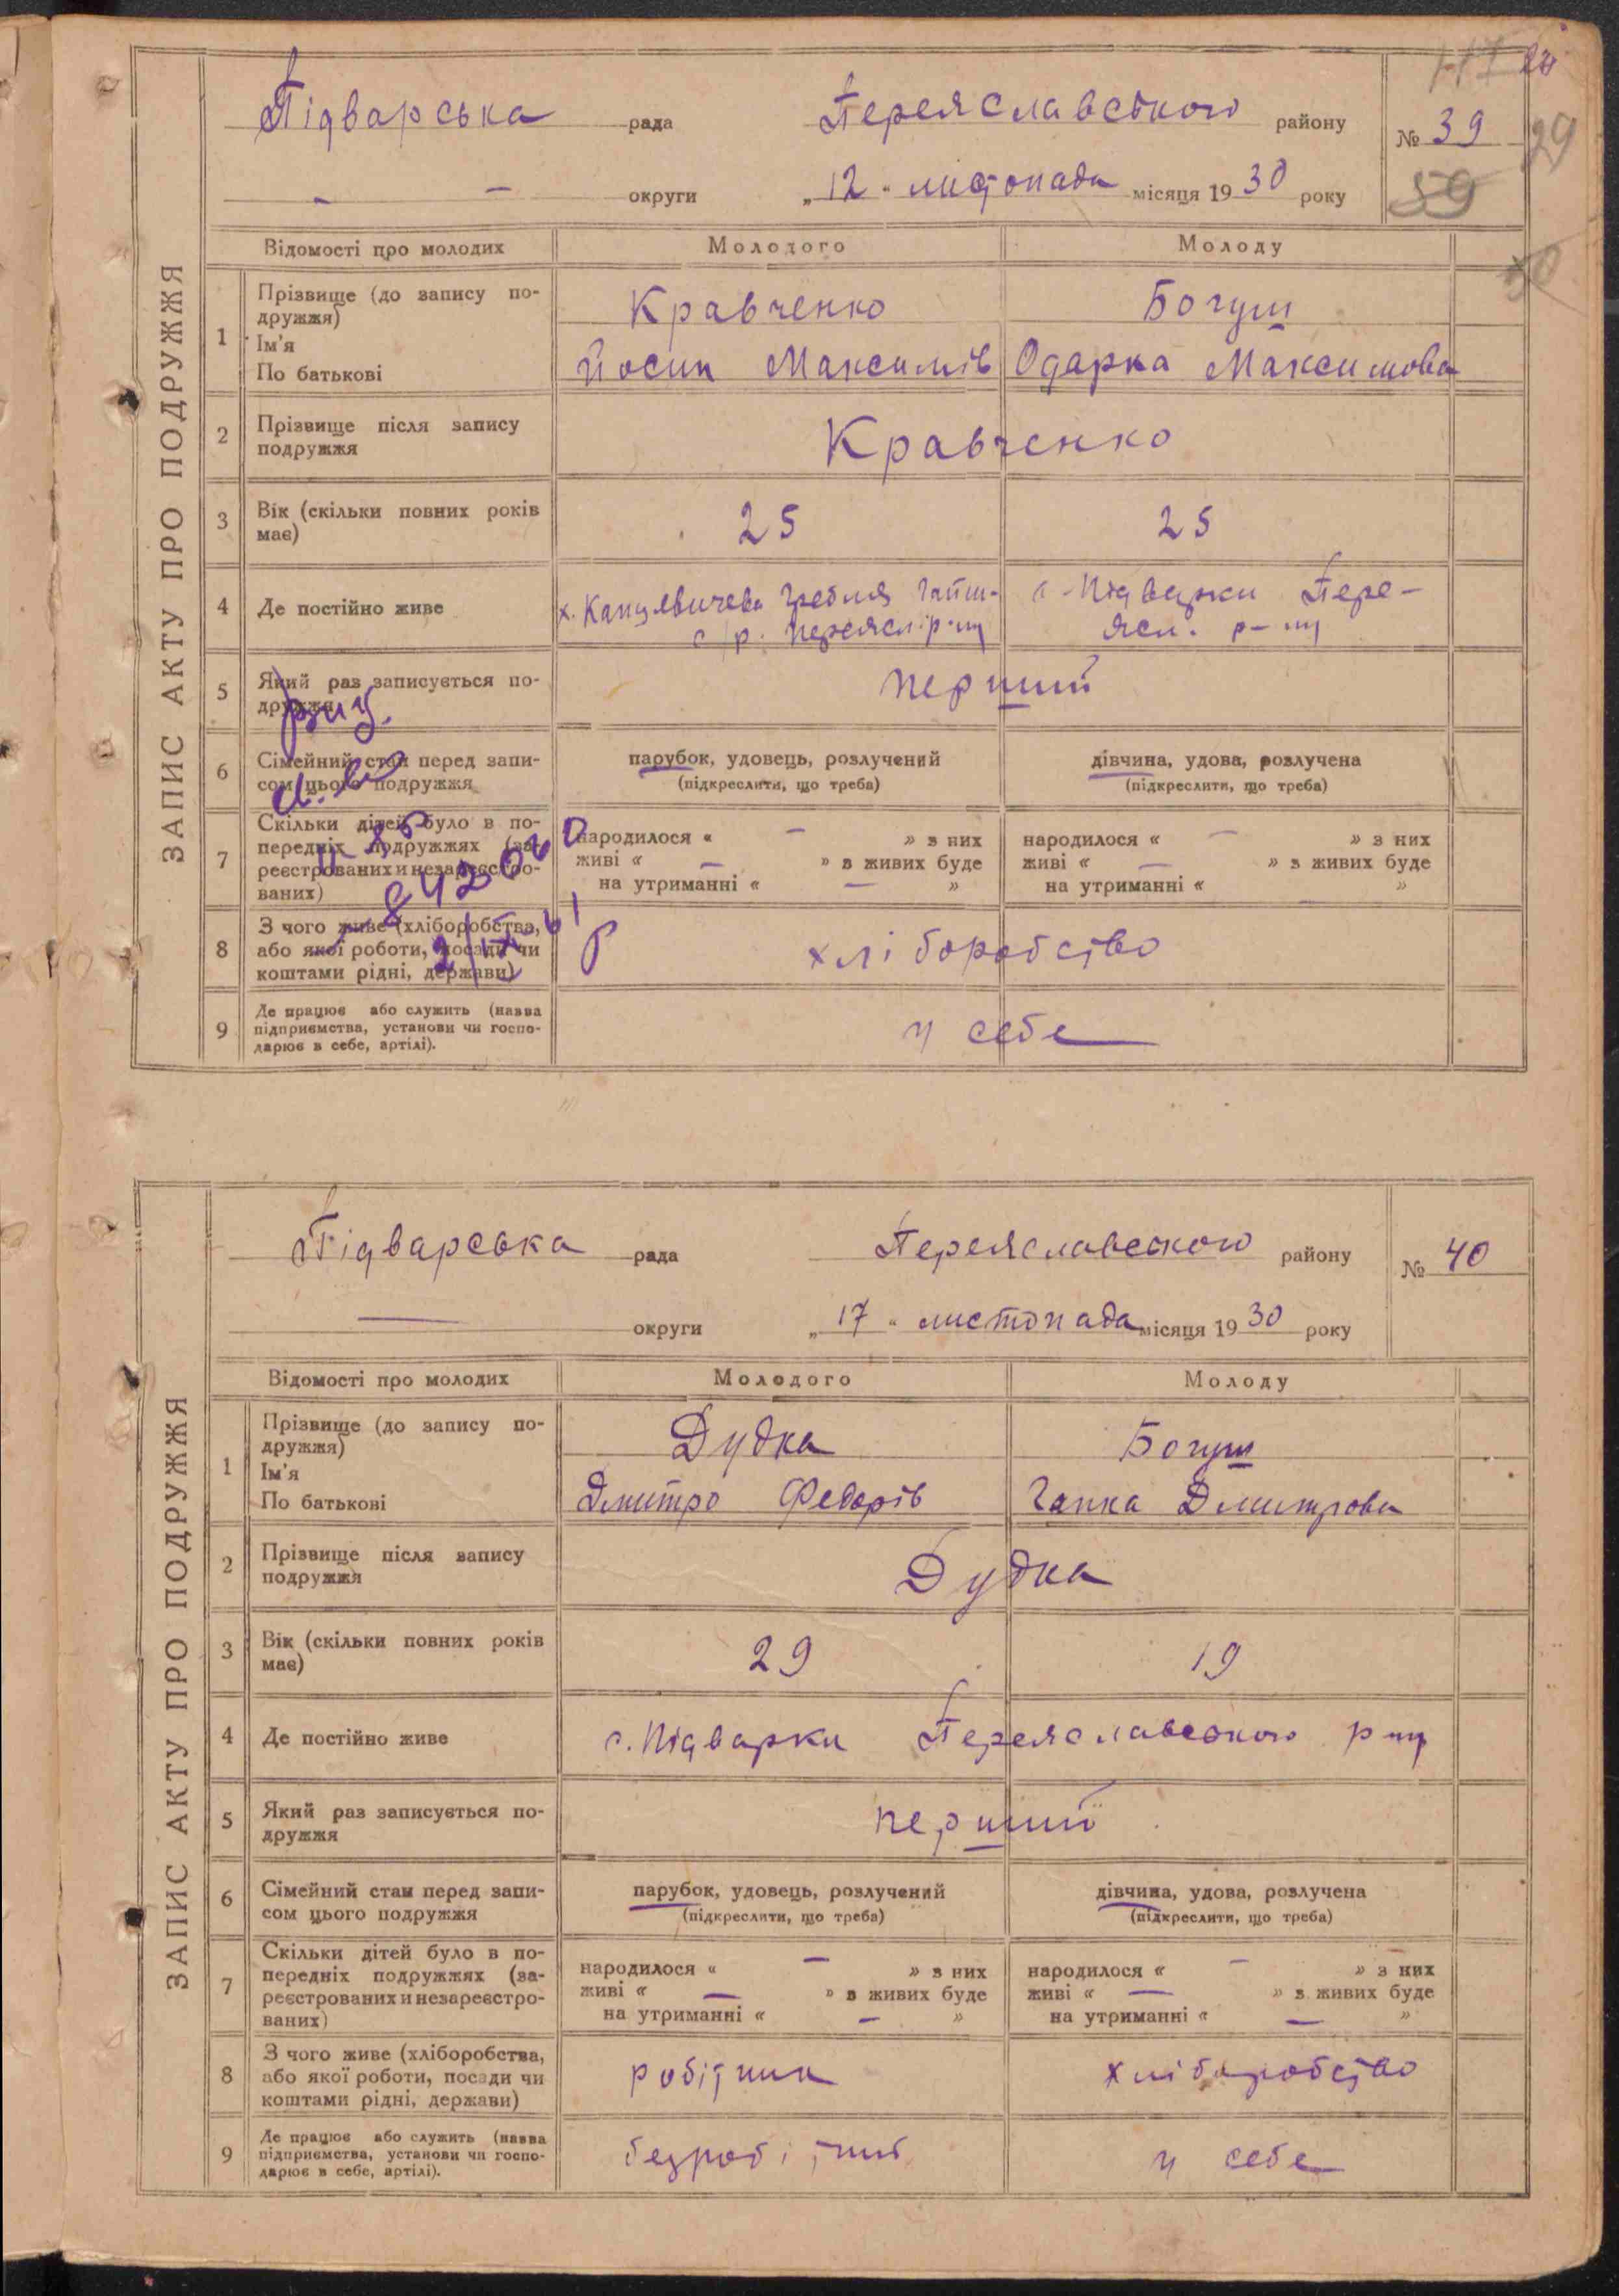 117 20
Підварська рада Переяславського району № 39 29
— — округи „12“ листопада місяця 1930 року 59
ЗАПИС АКТУ ПРО ПОДРУЖЖЯ
Відомості про молодих Молодого Молоду
30
1 Прізвище (до запису по-
дружжя) Кравченко Богуш
Ім'я
По батькові Йосип Максимів Одарка Максимова
2 Прізвище після запису
подружжя Кравченко
3 Вік (скільки повних років
має) 25 25
4 Де постійно живе х. Гребля с. Підварки Пере-
с/р. Переясл. р-ну ясл. р-ну
5 Який раз записується по-
дружжя перший
6 Сімейний стан перед запи-
сом цього подружжя
парубок, удовець, розлучений дівчина, удова, розлучена
(підкреслити, що треба) (підкреслити, що треба)
7 Скільки дітей було в по-
передніх подружжях (за-
реєстрованих и незареєстро-
ваних)
народилося « — » з них народилося « — » з них
живі « — » з живих буде живі « — » з живих буде
на утриманні « — » на утриманні « »
842040
2/IX-61
8 З чого живе (хліборобства,
або якої роботи, посади чи
коштами рідні, держави) хліборобство
9 Де працює або служить (назва
підприємства, установи чи госпо-
дарює в себе, артілі). у себе
Підварська рада Переяславського району № 40
— округи „17“ листопада місяця 1930 року
ЗАПИС АКТУ ПРО ПОДРУЖЖЯ
Відомості про молодих Молодого Молоду
1 Прізвище (до запису по-
дружжя) Дудка Богуш
Ім'я
По батькові Дмитро Федорів Гапка Дмитрова
2 Прізвище після запису
подружжя Дудка
3 Вік (скільки повних років
має) 29 19
4 Де постійно живе с. Підварки Переяславського р-ну
5 Який раз записується по-
дружжя перший
6 Сімейний стан перед запи-
сом цього подружжя
парубок, удовець, розлучений дівчина, удова, розлучена
(підкреслити, що треба) (підкреслити, що треба)
7 Скільки дітей було в по-
передніх подружжях (за-
реєстрованих и незареєстро-
ваних)
народилося « — » з них народилося « — » з них
живі « — » з живих буде живі « — » з живих буде
на утриманні « — » на утриманні « — »
8 З чого живе (хліборобства,
або якої роботи, посади чи
коштами рідні, держави) робітник хліборобство
9 Де працює або служить (назва
підприємства, установи чи госпо-
дарює в себе, артілі). безробітний у себе